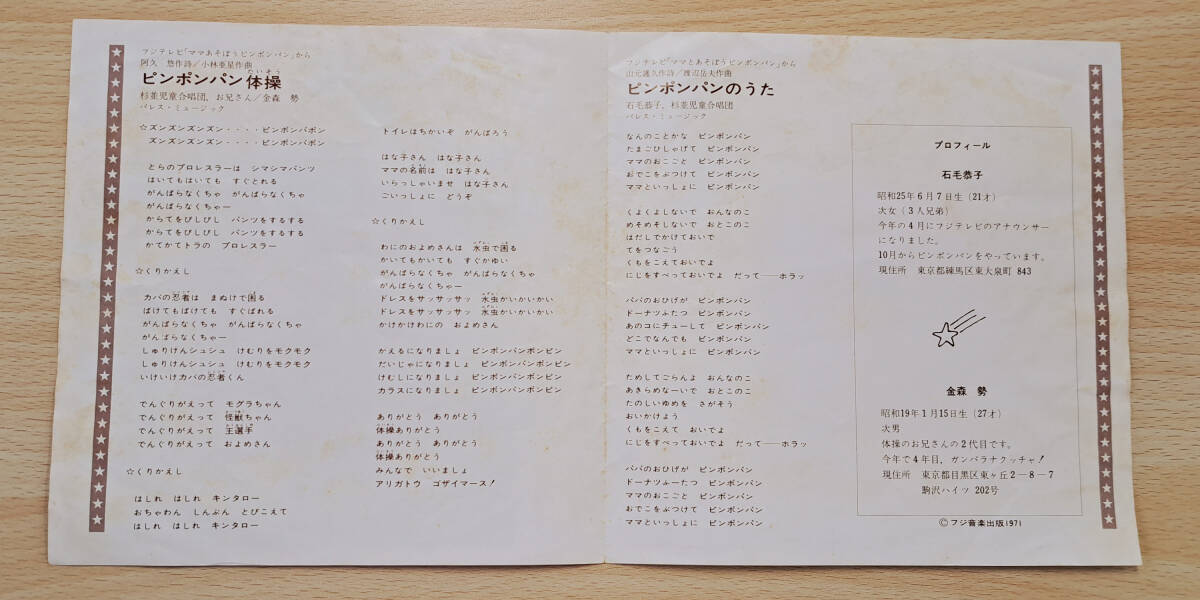 フジテレビ「ママあそぼうピンポンパン」から
阿久 悠作詩/小林亜星作曲
ピンポンパン体操
杉並児童合唱団, お兄さん/金森 勢
パレス・ミュージック
☆ズンズンズンズン・・・・ピンポンパポン
ズンズンズンズン・・・・ピンポンパポン
とらのプロレスラーは シマシマパンツ
はいてもはいても すぐとれる
がんばらなくちゃ がんばらなくちゃ
がんばらなくちゃー
からてをびしびし パンツをするする
からてをびしびし パンツをするする
かてかてトラの プロレスラー
☆くりかえし
カバの忍者は まぬけで困る
ばけてもばけても すぐばれる
がんばらなくちゃ がんばらなくちゃ
がんばらなくちゃー
しゅりけんシュシュ けむりをモクモク
しゅりけんシュシュ けむりをモクモク
いけいけカバの忍者くん
でんぐりがえって モグラちゃん
でんぐりがえって 怪獣ちゃん
でんぐりがえって 王選手
でんぐりがえって およめさん
☆くりかえし
はしれ はしれ キンタロー
おちゃわん しんぶん とびこえて
はしれ はしれ キンタロー
トイレはちかいぞ がんばろう
はな子さん はな子さん
ママの名前は はな子さん
いらっしゃいませ はな子さん
ごいっしょに どうぞ
☆くりかえし
わにのおよめさんは 水虫で困る
かいてもかいても すぐかゆい
がんばらなくちゃ がんばらなくちゃ
がんばらなくちゃー
ドレスをサッサッサッ 水虫かいかいかい
ドレスをサッサッサッ 水虫かいかいかい
かけかけわにの およめさん
かえるになりましょ ピンポンパンポンピン
だいじゃになりましょ ピンポンパンポンピン
けむしになりましょ ピンポンパンポンピン
カラスになりましょ ピンポンパンポンピン
ありがとう ありがとう
体操ありがとう
ありがとう ありがとう
体操ありがとう
みんなで いいましょ
アリガトウ ゴザイマース!
フジテレビ「ママとあそぼうピンポンパン」から
山元護久作詩/渡辺岳夫作曲
ピンポンパンのうた
石毛恭子, 杉並児童合唱団
パレス・ミュージック
なんのことかな ピンポンパン
たまごひしゃげて ピンポンパン
ママのおこごと ピンポンパン
おでこをぶつけて ピンポンパン
ママといっしょに ピンポンパン
くよくよしないで おんなのこ
めそめそしないで おとこのこ
はだしでかけておいで
てをつなごう
くもをこえておいでよ
にじをすべっておいでよ だって──ホラッ
パパのおひげが ピンポンパン
ドーナツふたつ ピンポンパン
あのコにチューして ピンポンパン
どこでなんでも ピンポンパン
ママといっしょに ピンポンパン
ためしてごらんよ おんなのこ
あきらめなーいで おとこのこ
たのしいゆめを さがそう
おいかけよう
くもをこえて おいでよ
にじをすべっておいでよ だって──ホラッ
パパのおひげが ピンポンパン
ドーナツふーたつ ピンポンパン
ママのおこごと ピンポンパン
おでこをぶつけて ピンポンパン
ママといっしょに ピンポンパン
プロフィール
石毛恭子
昭和25年6月7日生(21才)
次女(3人兄弟)
今年の4月にフジテレビのアナウンサー
になりました。
10月からピンポンパンをやっています。
現住所 東京都練馬区東大泉町 843
金森 勢
昭和19年1月15日生(27才)
次男
体操のお兄さんの2代目です。
今年で4年目, ガンバラナクッチャ!
現住所 東京都目黒区東ヶ丘2−8−7
駒沢ハイツ 202号
©フジ音楽出版1971